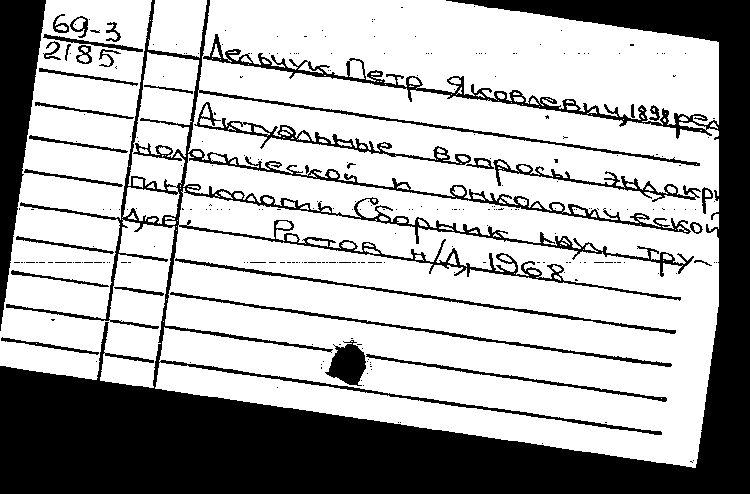 69-3
2185
Лельчук Петр Яковлевич, 1898 ред
Актуальные вопросы эндокри
нологической и онкологической
гинекологии. Сборник науч. тру-
дов. Ростов н/Д, 1968.